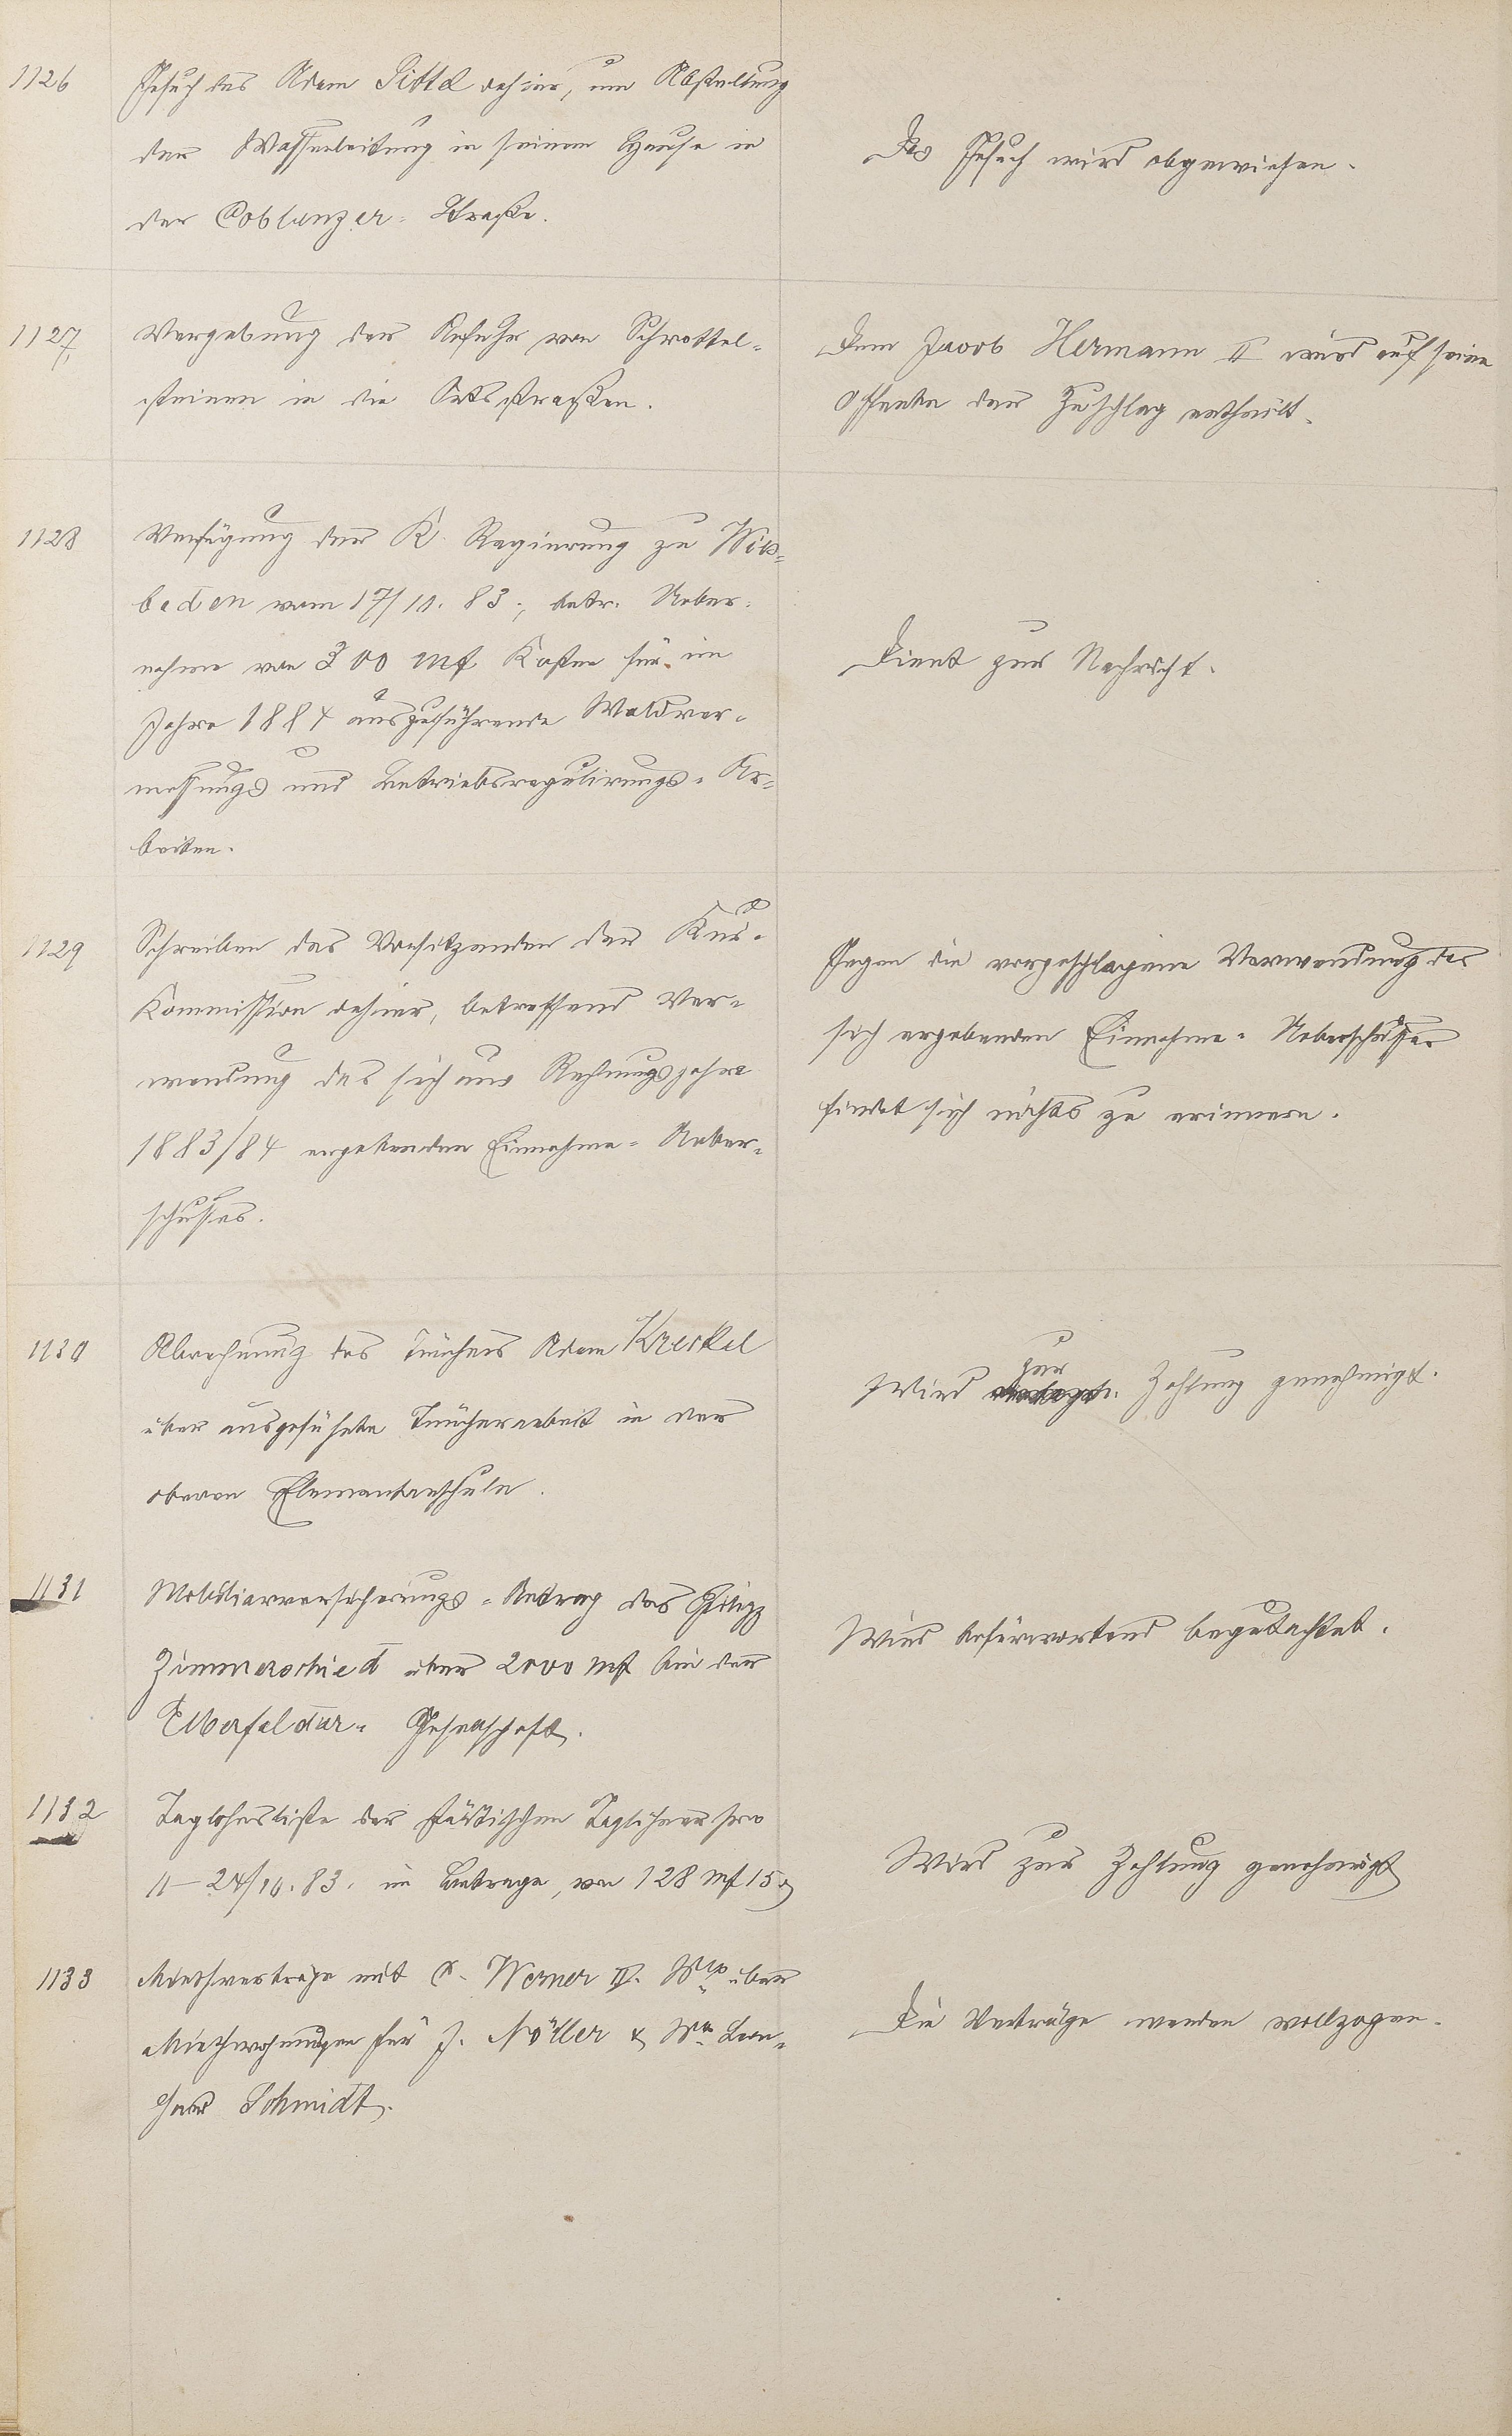 1126
Gesuch des Adam Sittel dahier, um Abstellung
der Wasserleitung in seinem Hause in
der Coblenzer-Straße.
Das Gesuch wird abgewiesen.
1127
Vergebung der Anfuhr von Schrottel-
steinen in die Ortsstraßen.
Dem Jacob Hermann II wird auf seine
Offerte der Zuschlag ertheilt.
1128
Verfügung der K. Regierung zu Wies-
baden vom 17/10. 83., betr. Ueber-
nahme von 300 Mk Kosten für im
Jahre 1884 auszuführende Waldver-
messungs und Betriebsregulirungs-Ar-
beiten.
Dient zur Nachricht.
1129
Schreiben des Vorsitzenden der Kur-
Kommission dahier, betreffend Ver-
wendung des sich aus Rechnungsjahre
1883/84 ergebenden Einnahme-Ueber-
schusses.
Gegen die vorgeschlagene Verwendung des
sich ergebenden Einnahme-Ueberschusses
findet sich nichts zu erinnern.
1130
Abrechnung des Tünchers Adam Kreckel
über ausgeführte Tüncherarbeit in der
oberen Elementarschule.
Wird zur Zahlung genehmigt.
1131
Mobiliarversicherungs-Antrag des Philipp
Zimmerschied über 2000 Mk bei der
Elberfelder-Gesellschaft.
Wird befürwortend begutachtet.
1132
Taglohnsliste der städtischen Taglöhner pro
11-24/10. 83. im Betrage, von 128 Mk 15 ₰
Wird zur Zahlung genehmigt
1133
Miethverträge mit C. Werner IV. Wwe über
Miethwohnungen für J. Nöller & Wwe Leon-
hard Schmidt.
Die Verträge werden vollzogen.